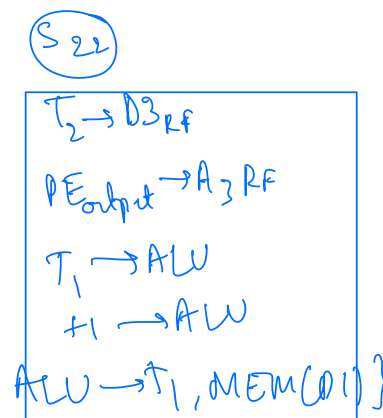 S22
T2→D3RF
PEoutput→A3RF
T1→ALU
+1→ALU
ALU→T1, MEM(DI)}